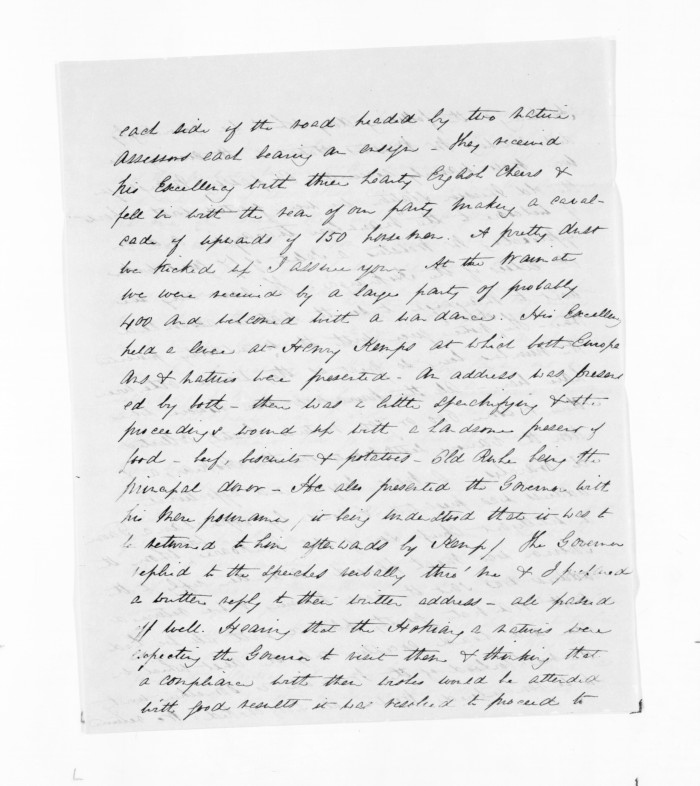 each side of the road headed by two native
assessors each bearing an ensign - They received
his Excellency with three hearty English cheers &
fell in with the rear of our party making a caval-
cade of upwards of 150 horsemen. A pretty dust
we kicked up I assure you - At the Waimate
we were received by a large party of probably
400 and welcomed with a war dance. His Excellency
held a levee at Henry Kemps at which both Europe
ans & natives were presented - An address was present
ed by both - there was a little speechifying & the
proceedings wound up with a handsome present of
food - beef, biscuits & potatoes - Old Ruhe being the
principal donor - He also presented the Governor with
his mere pounamu, it being understood that it was to
be returned to him afterwards by Kemp/ The Governor
replied to the speeches verbally thro' me & I prepared
a written reply to their written address - all passed
off well. Hearing that the Hokianga natives were
expecting the Governor to visit them & thinking that
a compliance with their wishes would be attended
with good results it was resolved to proceed to